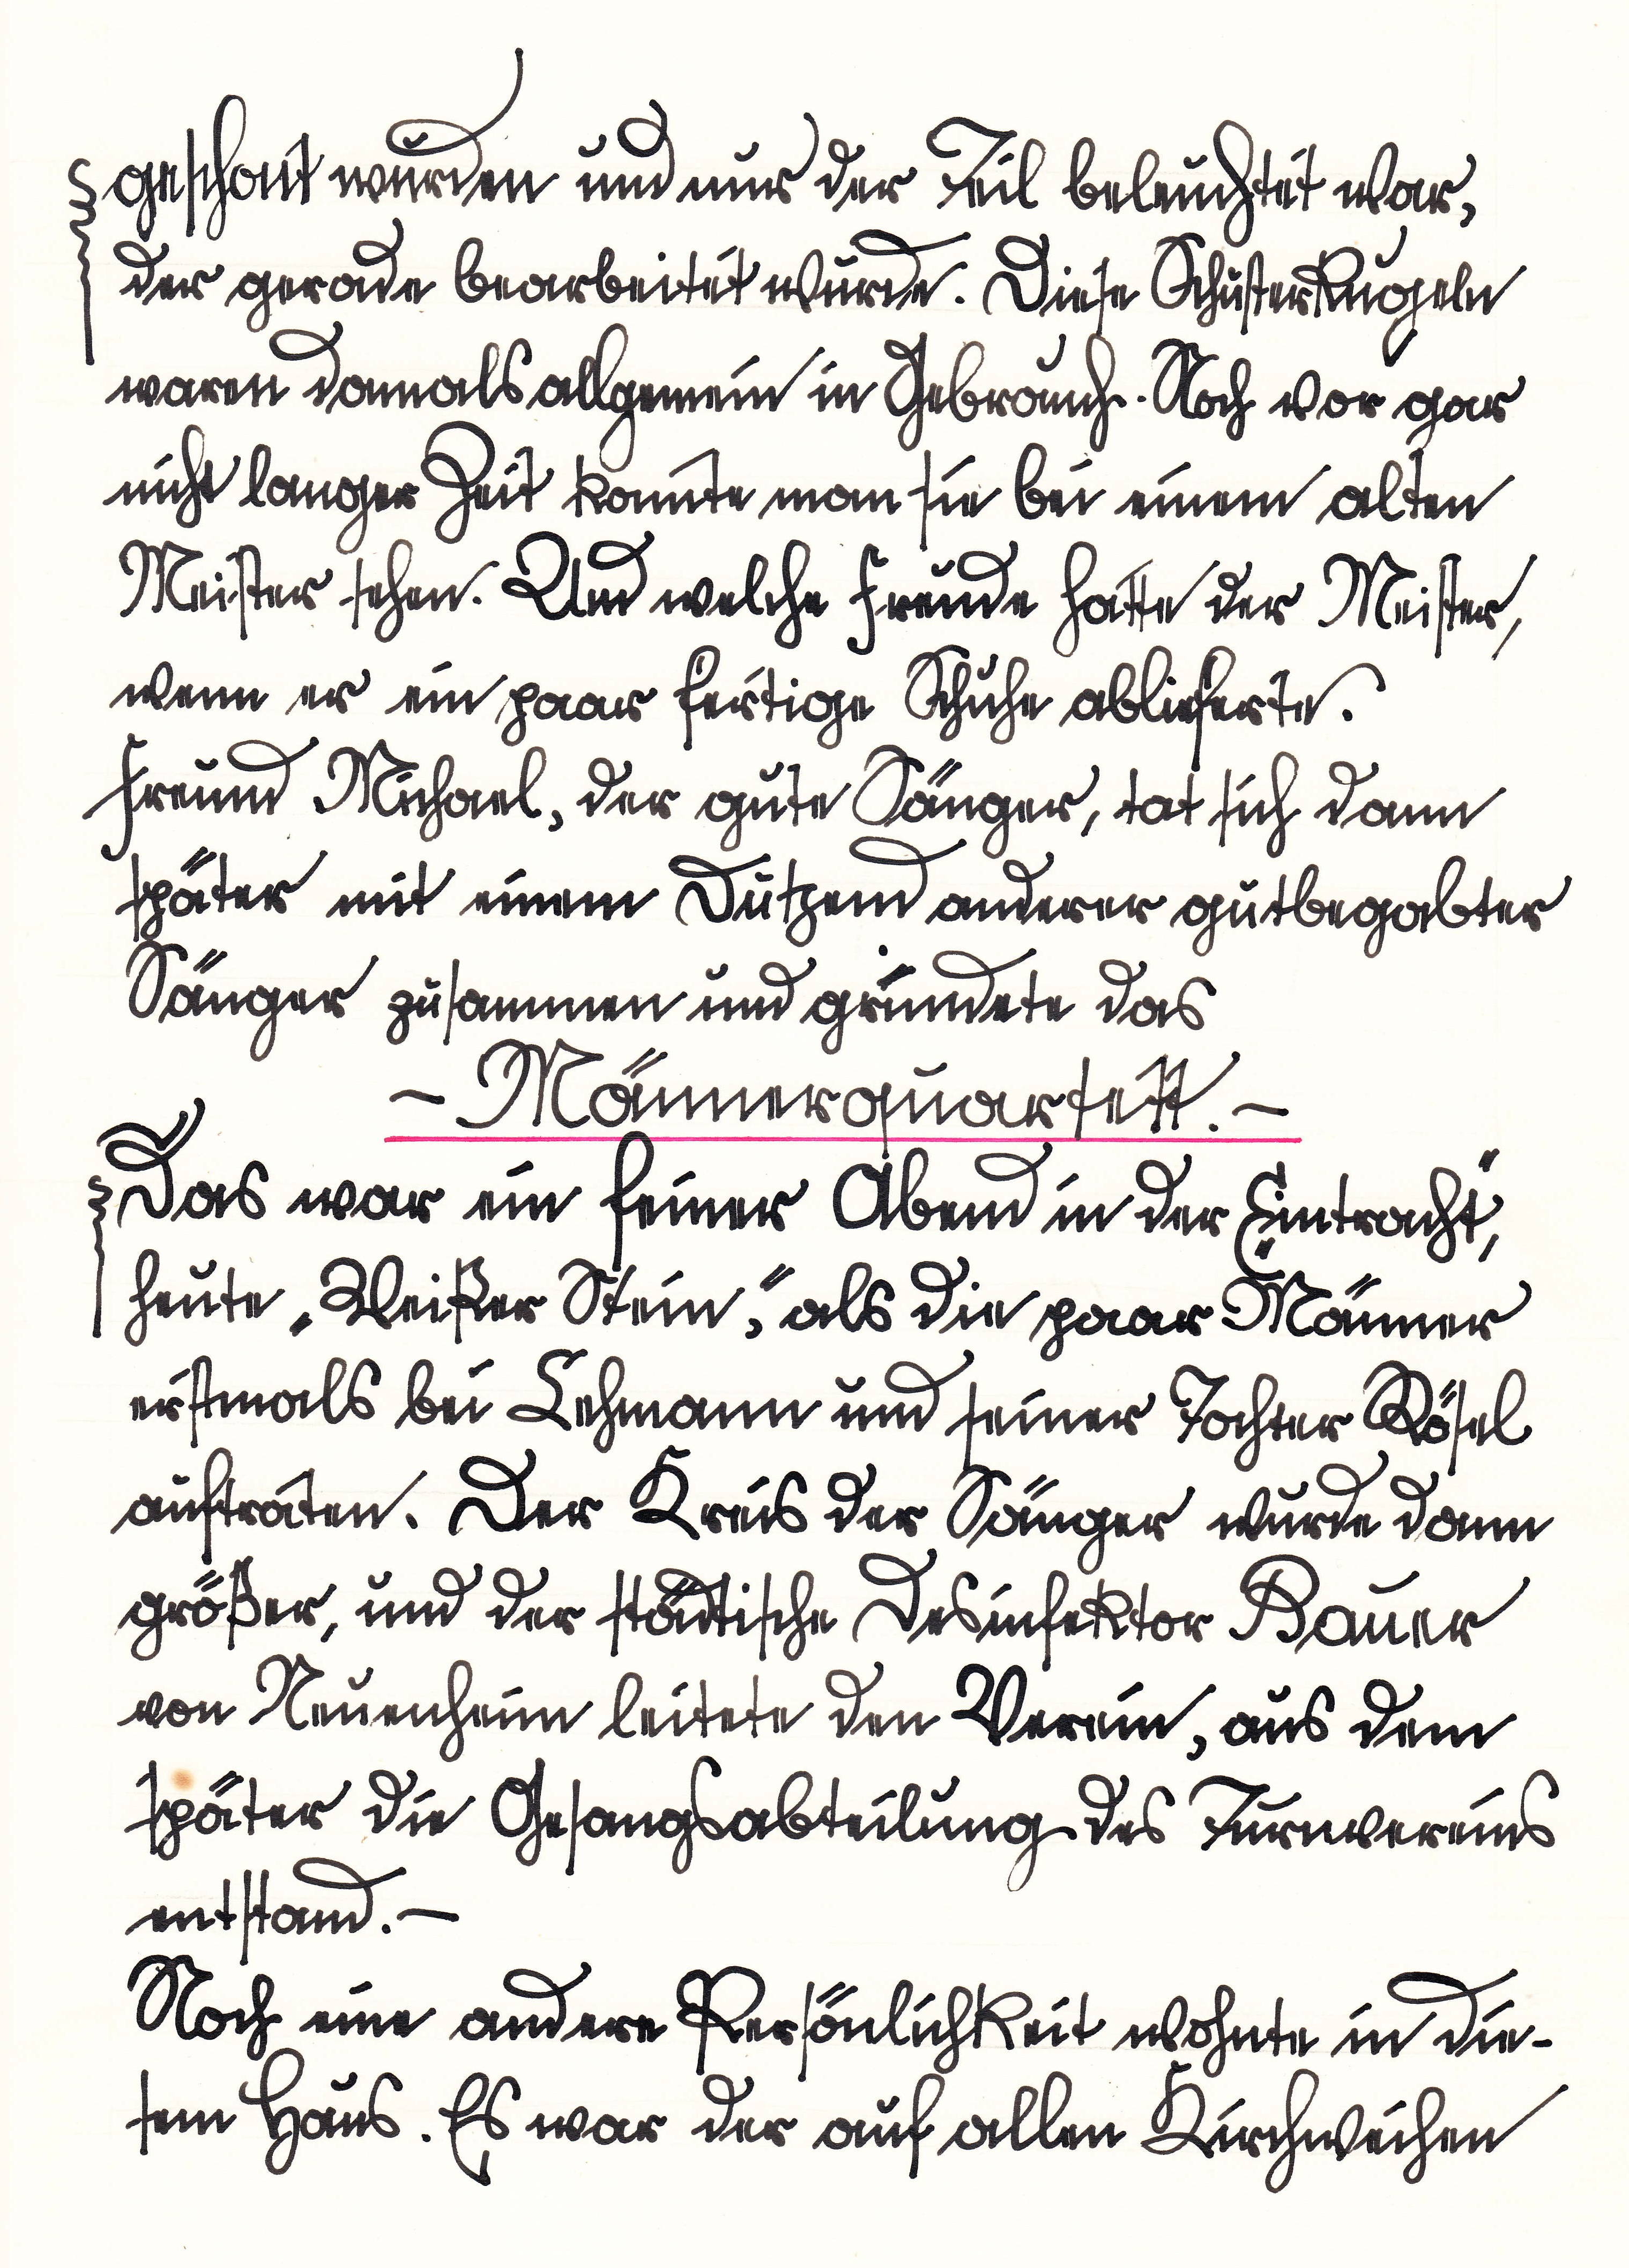 geschont wurden und nur der Teil beleuchtet war,
der gerade bearbeitet wurde. Diese Schusterkugeln
waren damals allgemein in Gebrauch. Noch vor gar
nicht langer Zeit konnte man sie bei einem alten
Meister sehen. Und welche Freude hatte der Meister,
wenn er ein paar fertige Schuhe ablieferte.
Freund Michael, der gute Sänger, tat sich dann
später mit einem Dutzend anderer gutbegabter
Sänger zusammen und gründete das
- Männerquartett. -
Das war ein feiner Abend in der „Eintracht",
heute „Weißer Stein," als die paar Männer
erstmals bei Lehmann und seiner Tochter Rösel
auftraten. Der Kreis der Sänger wurde dann
größer, und der städtische Desinfektor Bauer
von Neuenheim leitete den Verein, aus dem
später die Gesangsabteilung des Turnvereins
entstand. -
Noch eine andere Persönlichkeit wohnte in die-
sem Haus. Es war der auf allen Kirchweihen